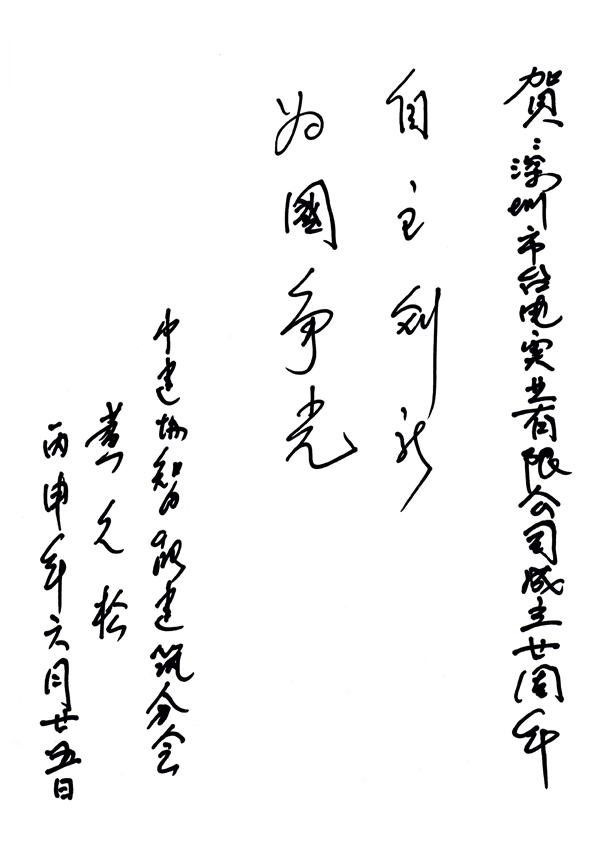 贺:深圳市台电实业有限公司成立廿周年
自主创新
为國争光
中建协智能建筑分会
黄久松
丙申年六月廿五日